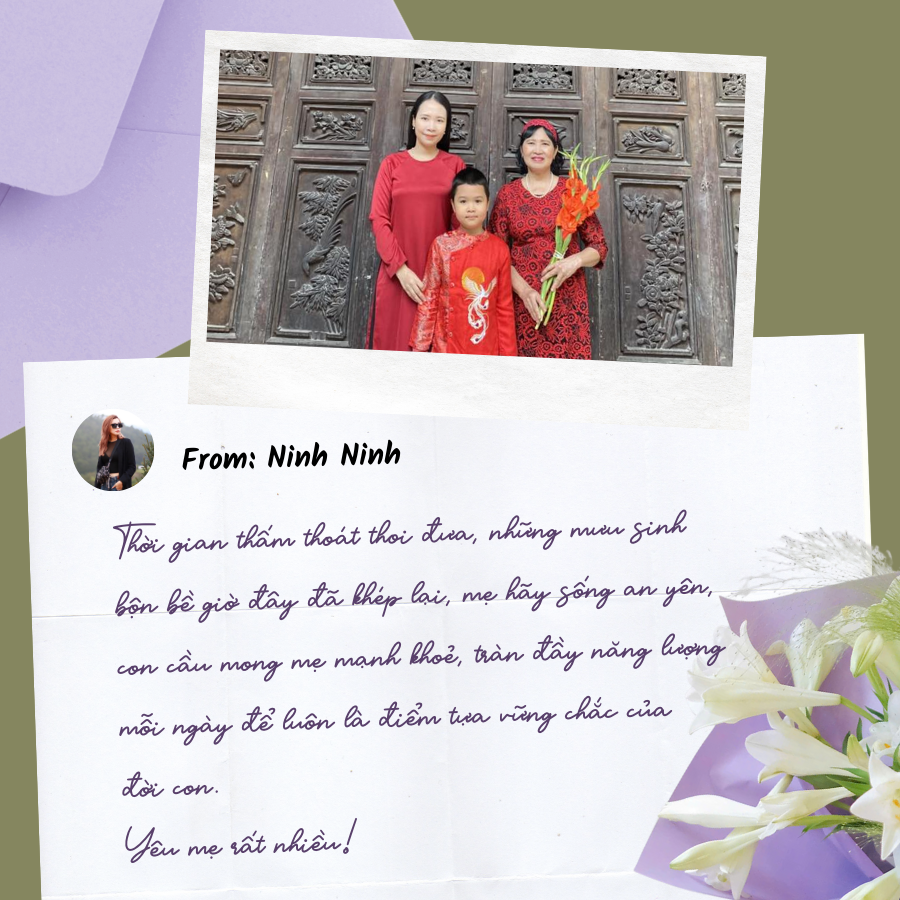 From: Ninh Ninh
Thời gian thấm thoát thoi đưa, những mưu sinh
bộn bề giờ đây đã khép lại, mẹ hãy sống an yên,
con cầu mong mẹ mạnh khoẻ, tràn đầy năng lượng
mỗi ngày để luôn là điểm tựa vững chắc của
đời con.
Yêu mẹ rất nhiều!